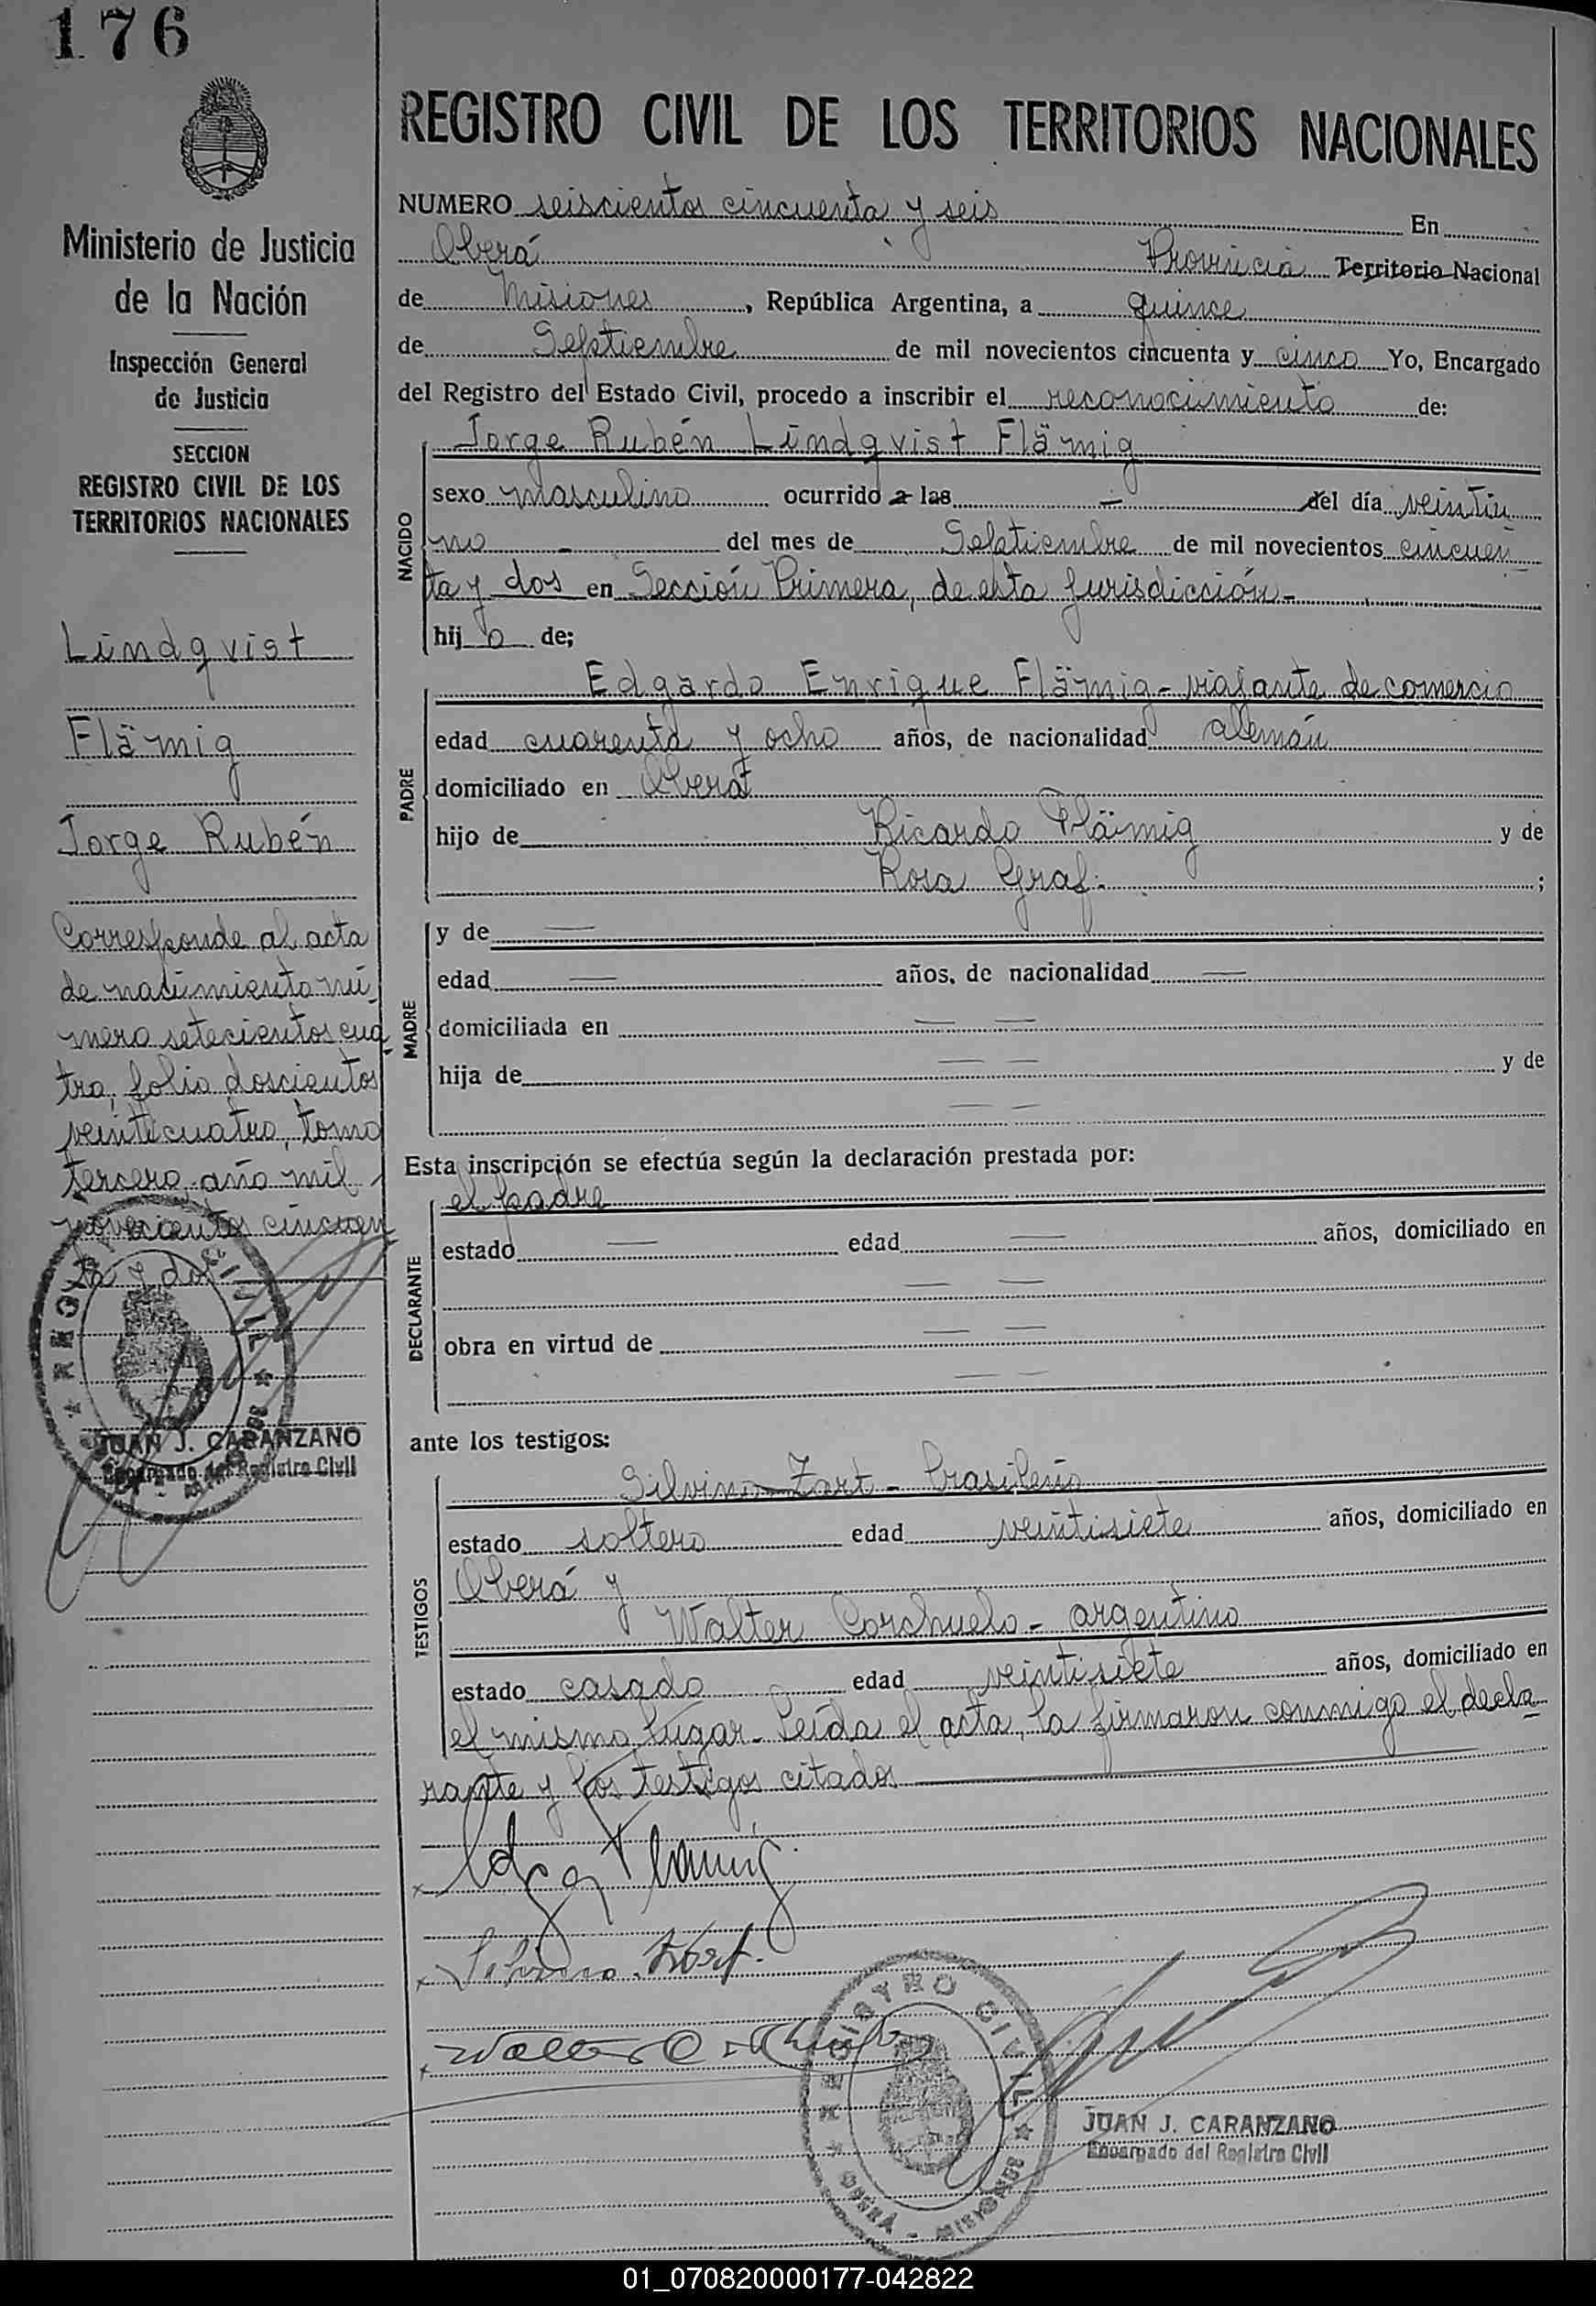 176
Ministerio de Justicia
de la Nación
Inspección General
de Justicia
SECCION
REGISTRO CIVIL DE LOS
TERRITORIOS NACIONALES
Lündqvist
Flämig
Jorge Rubén
Corresponde al acta
de nacimiento nú
mero setecientos cua
tro, folio doscientos
veinticuatro, tomo
tercero, año mil
novecientos cincuen
ta y dos
REGISTRO CIVIL
JUAN J. CARANZANO
Encargado del Registro Civil
REGISTRO CIVIL DE LOS TERRITORIOS NACIONALES
NUMERO seiscientos cincuenta y seis En
Oberá Provincia Territorio Nacional
de Misiones, República Argentina, a quince
de Septiembre de mil novecientos cincuenta y cinco Yo, Encargado
del Registro del Estado Civil, procedo a inscribir el reconocimiento de:
NACIDO
Jorge Rubén Lündqvist Flämig
sexo masculino ocurrido a las — del día veintiu
no - del mes de Septiembre de mil novecientos cincuen
ta y dos en Sección Primera, de esta jurisdicción.-
hij o de;
PADRE
Edgardo Enrique Flämig - viajante de comercio
edad cuarenta y ocho años, de nacionalidad alemán
domiciliado en Oberá
hijo de Ricardo Flämig y de
Rosa Graf.- ;
MADRE
y de —
edad — años, de nacionalidad —
domiciliada en — —
hija de — — y de
— —
Esta inscripción se efectúa según la declaración prestada por:
DECLARANTE
el padre
estado — edad — años, domiciliado en
— —
obra en virtud de — —
— —
ante los testigos:
TESTIGOS
Silvino Zort - brasileño
estado soltero edad veintisiete años, domiciliado en
Oberá y
Walter Corchuelo - argentino
estado casado edad veintisiete años, domiciliado en
el mismo lugar. Leída el acta, la firmaron conmigo el decla
rante y los testigos citados
x Edgar Flämig
x Silvino Zort.
x Walter
REGISTRO CIVIL
OBERÁ - MISIONES
JUAN J. CARANZANO
Encargado del Registro Civil
01_070820000177-042822